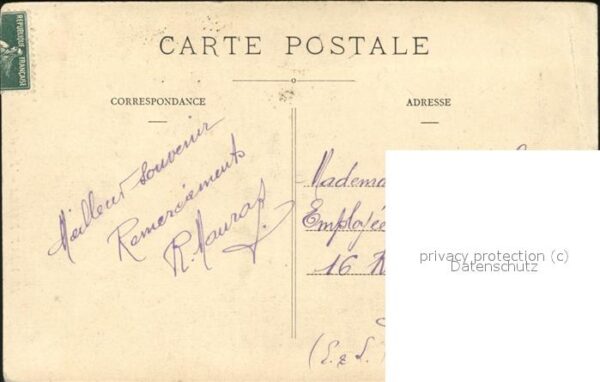 RÉPUBLIQUE FRANÇAISE
CARTE POSTALE
CORRESPONDANCE
ADRESSE
Meilleur souvenir
Remerciements
R.
Madem
Employée
16 R
(L. & L.
privacy protection (c)
Datenschutz